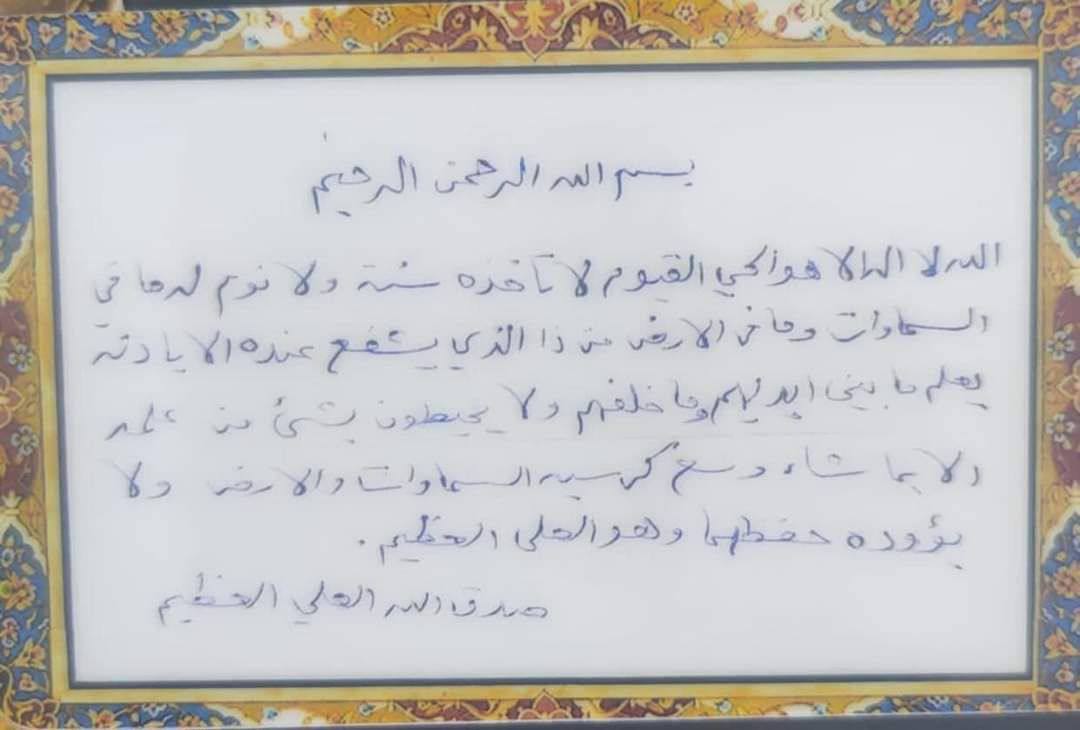 بسم الله الرحمن الرحيم
الله لا اله الا هو الحي القيوم لا تأخذه سنة ولا نوم له ما في
السماوات وما في الارض من ذا الذي يشفع عنده الا باذنه
يعلم ما بين ايديهم وما خلفهم ولا يحيطون بشئ من علمه
الا بما شاء وسع كرسيه السماوات والارض ولا
يؤوده حفظهما وهو العلي العظيم .
صدق الله العلي العظيم